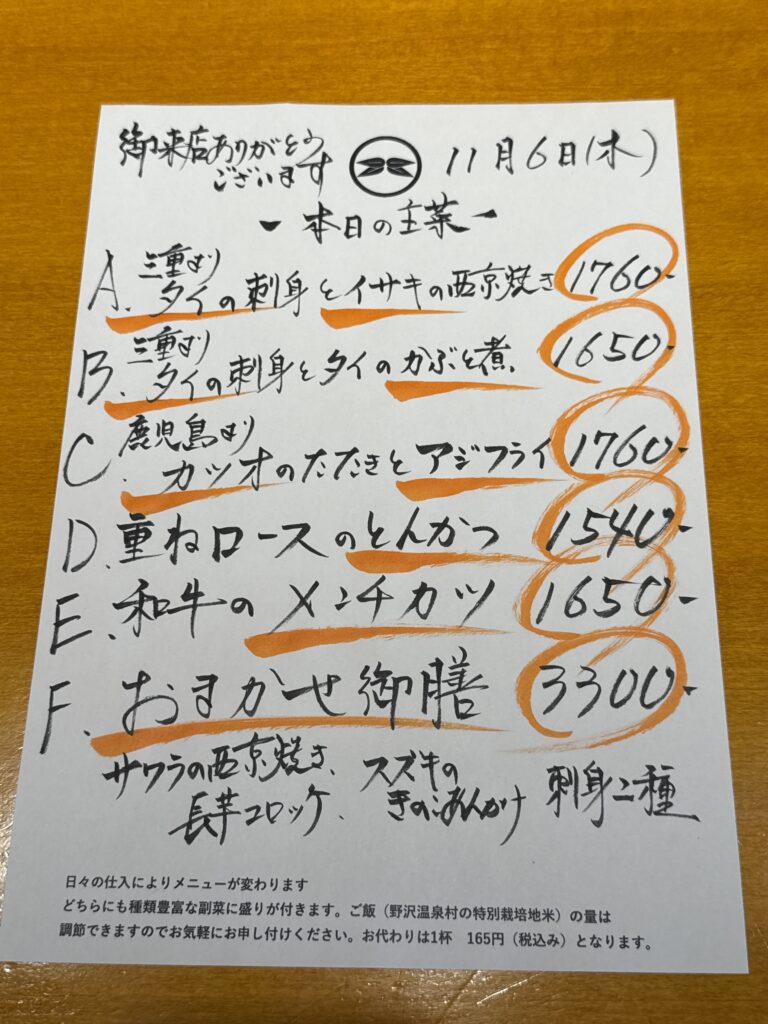 御来店ありがとう
ございます
11月6日(水)
ー本日の主菜ー
A. 三重より
タイの刺身とイサキの西京焼き 1760-
B. 三重より
タイの刺身とタイのかぶと煮 1650-
C. 鹿児島より
カツオのたたきとアジフライ 1760-
D. 重ねロースのとんかつ 1540-
E. 和牛のメンチカツ 1650-
F. おまかせ御膳 3300-
サワラの西京焼き、
長芋コロッケ、
スズキの
きのこあんかけ
刺身二種
日々の仕入によりメニューが変わります
どちらにも種類豊富な副菜に盛りが付きます。ご飯（野沢温泉村の特別栽培地米）の量は
調節できますのでお気軽にお申し付けください。お代わりは1杯　165円（税込み）となります。